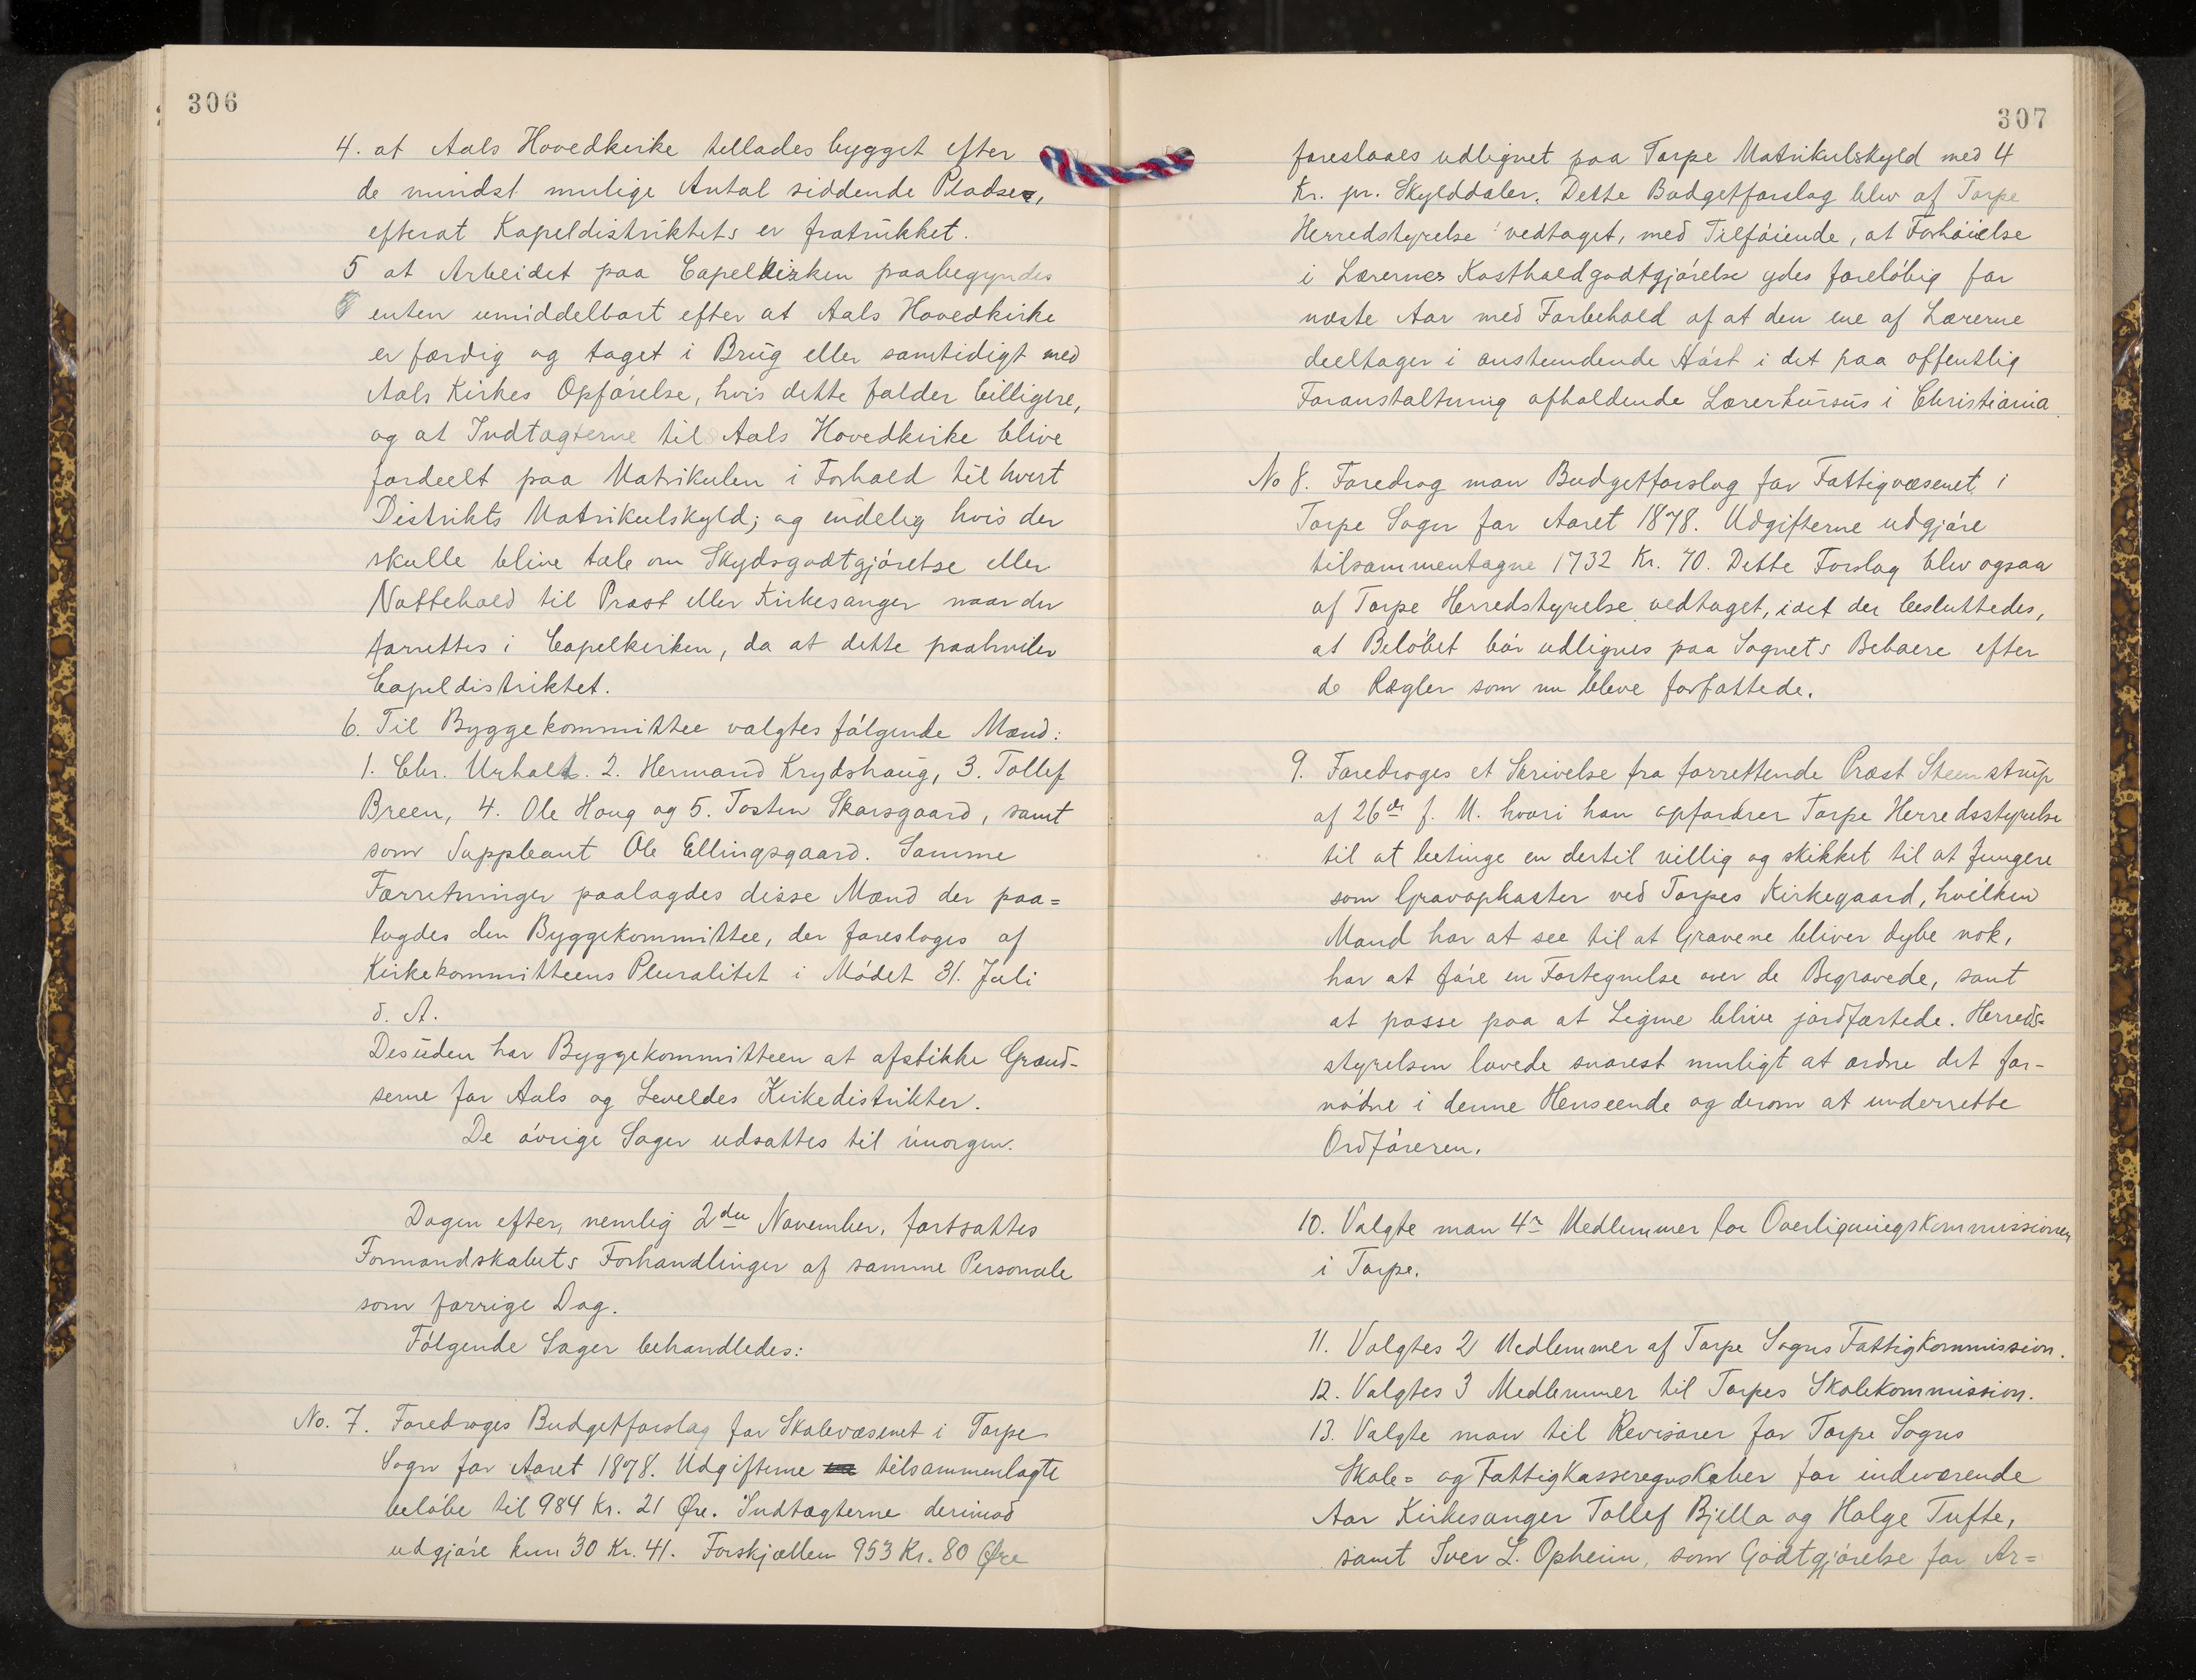 306
4. at Aals Hovedkirke tillades bygget efter
de mindst mulige Antal siddende Pladse,
efterat Kapeldistriktets er fratrukket.
5 at Arbeidet paa Capelkirken paabegyndes
enten umiddelbart efter at Aals Hovedkirke
er færdig og taget i Brug eller samtidigt med
Aals Kirkes Opførelse, hvis dette falder billigere,
og at Indtægterne til Aals Hovedkirke blive
fordeelt paa Matrikulen i Forhold til hvert
Distrikts Matrikulskyld; og endelig hvis der
skulle blive tale om Skydsgodtgjørelse eller
Nattehold til Præst eller Kirkesanger naar der
forrettes i Capelkirken, da at dette paahviler
Capeldistriktet.
6. Til Byggekommittee valgtes følgende Mænd:
1. Chr. Urhald. 2. Hermand Krydshaug, 3. Tollef
Breen, 4. Ole Houg og 5. Tosten Skarsgaard, samt
som Suppleant Ole Ellingsgaard. Samme
Forretninger paalagdes disse Mænd der paa=
lagdes den Byggekommittee, der foresloges af
Kirkekommitteens Pluralitet i Mødet 31. Juli
d. A.
Desuden har Byggekommitteen at afstikke Grænd-
serne for Aals og Leveldes Kirkedistrikter.
De øvrige Sager udsattes til imorgen.
Dagen efter, nemlig 2den November, fortsattes
Formandskabets Forhandlinger af samme Personale
som forrige Dag.
Følgende Sager behandledes:
No. 7. Foredroges Budgetforslag for Skolevæsenet i Torpe
Sogn for Aaret 1878. Udgifterne tilsammenlagte
beløbe til 984 Kr. 21 Øre. Indtægterne derimod
udgjøre kun 30 Kr. 41. Forskjællen 953 Kr. 80 Øre
307
foreslaaes udlignet paa Torpe Matrikulskyld med 4
Kr. pr. Skylddaler. Dette Budgetforslag blev af Torpe
Herredstyrelse vedtaget, med Tilføiende, at Forhøielse
i Lærernes Kostholdgodtgjørelse ydes foreløbig for
næste Aar med Forbehold af at den ene af Lærerne
deeltager i anstundende Høst i det paa offentlig
Foranstaltning afholdende Lærerkursus i Christiania.
No 8. Foredrog man Budgetforslag for Fattigvæsenet i
Torpe Sogn for Aaret 1878. Udgifterne udgjøre
tilsammentagne 1732 Kr. 70. Dette Forslag blev ogsaa
af Torpe Herredstyrelse vedtaget, idet der besluttedes,
at Beløbet bør udlignes paa Sognets Beboere efter
de Regler som nu bleve forfattede.
9. Foredroges et Skrivelse fra forrettende Præst Steenstrup
af 26de f. M. hvori han opfordrer Torpe Herredsstyrelse
til at betinge en dertil villig og skikket til at fungere
som Gravopkaster ved Torpes Kirkegaard, hvilken
Mand har at see til at Gravene bliver dybe nok,
har at føre en Fortegnelse over de Begravede, samt
at passe paa at Ligene blive jordfæstede. Herreds=
styrelsen lovede snarest muligt at ordne det for-
nødne i denne Henseende og derom at underrette
Ordføreren.
10. Valgte man 4r Medlemmer for Overligningskommissionen
i Torpe.
11. Valgtes 2 Medlemmer af Torpe Sogns Fattigkommission.
12. Valgtes 3 Medlemmer til Torpes Skolekommission.
13. Valgte man til Revisorer for Torpe Sogns
Skole= og Fattigkasseregnskaber for indeværende
Aar Kirkesanger Tollef Bjella og Holge Tufte,
samt Iver L. Opheim, som Godtgjørelse for Ar=